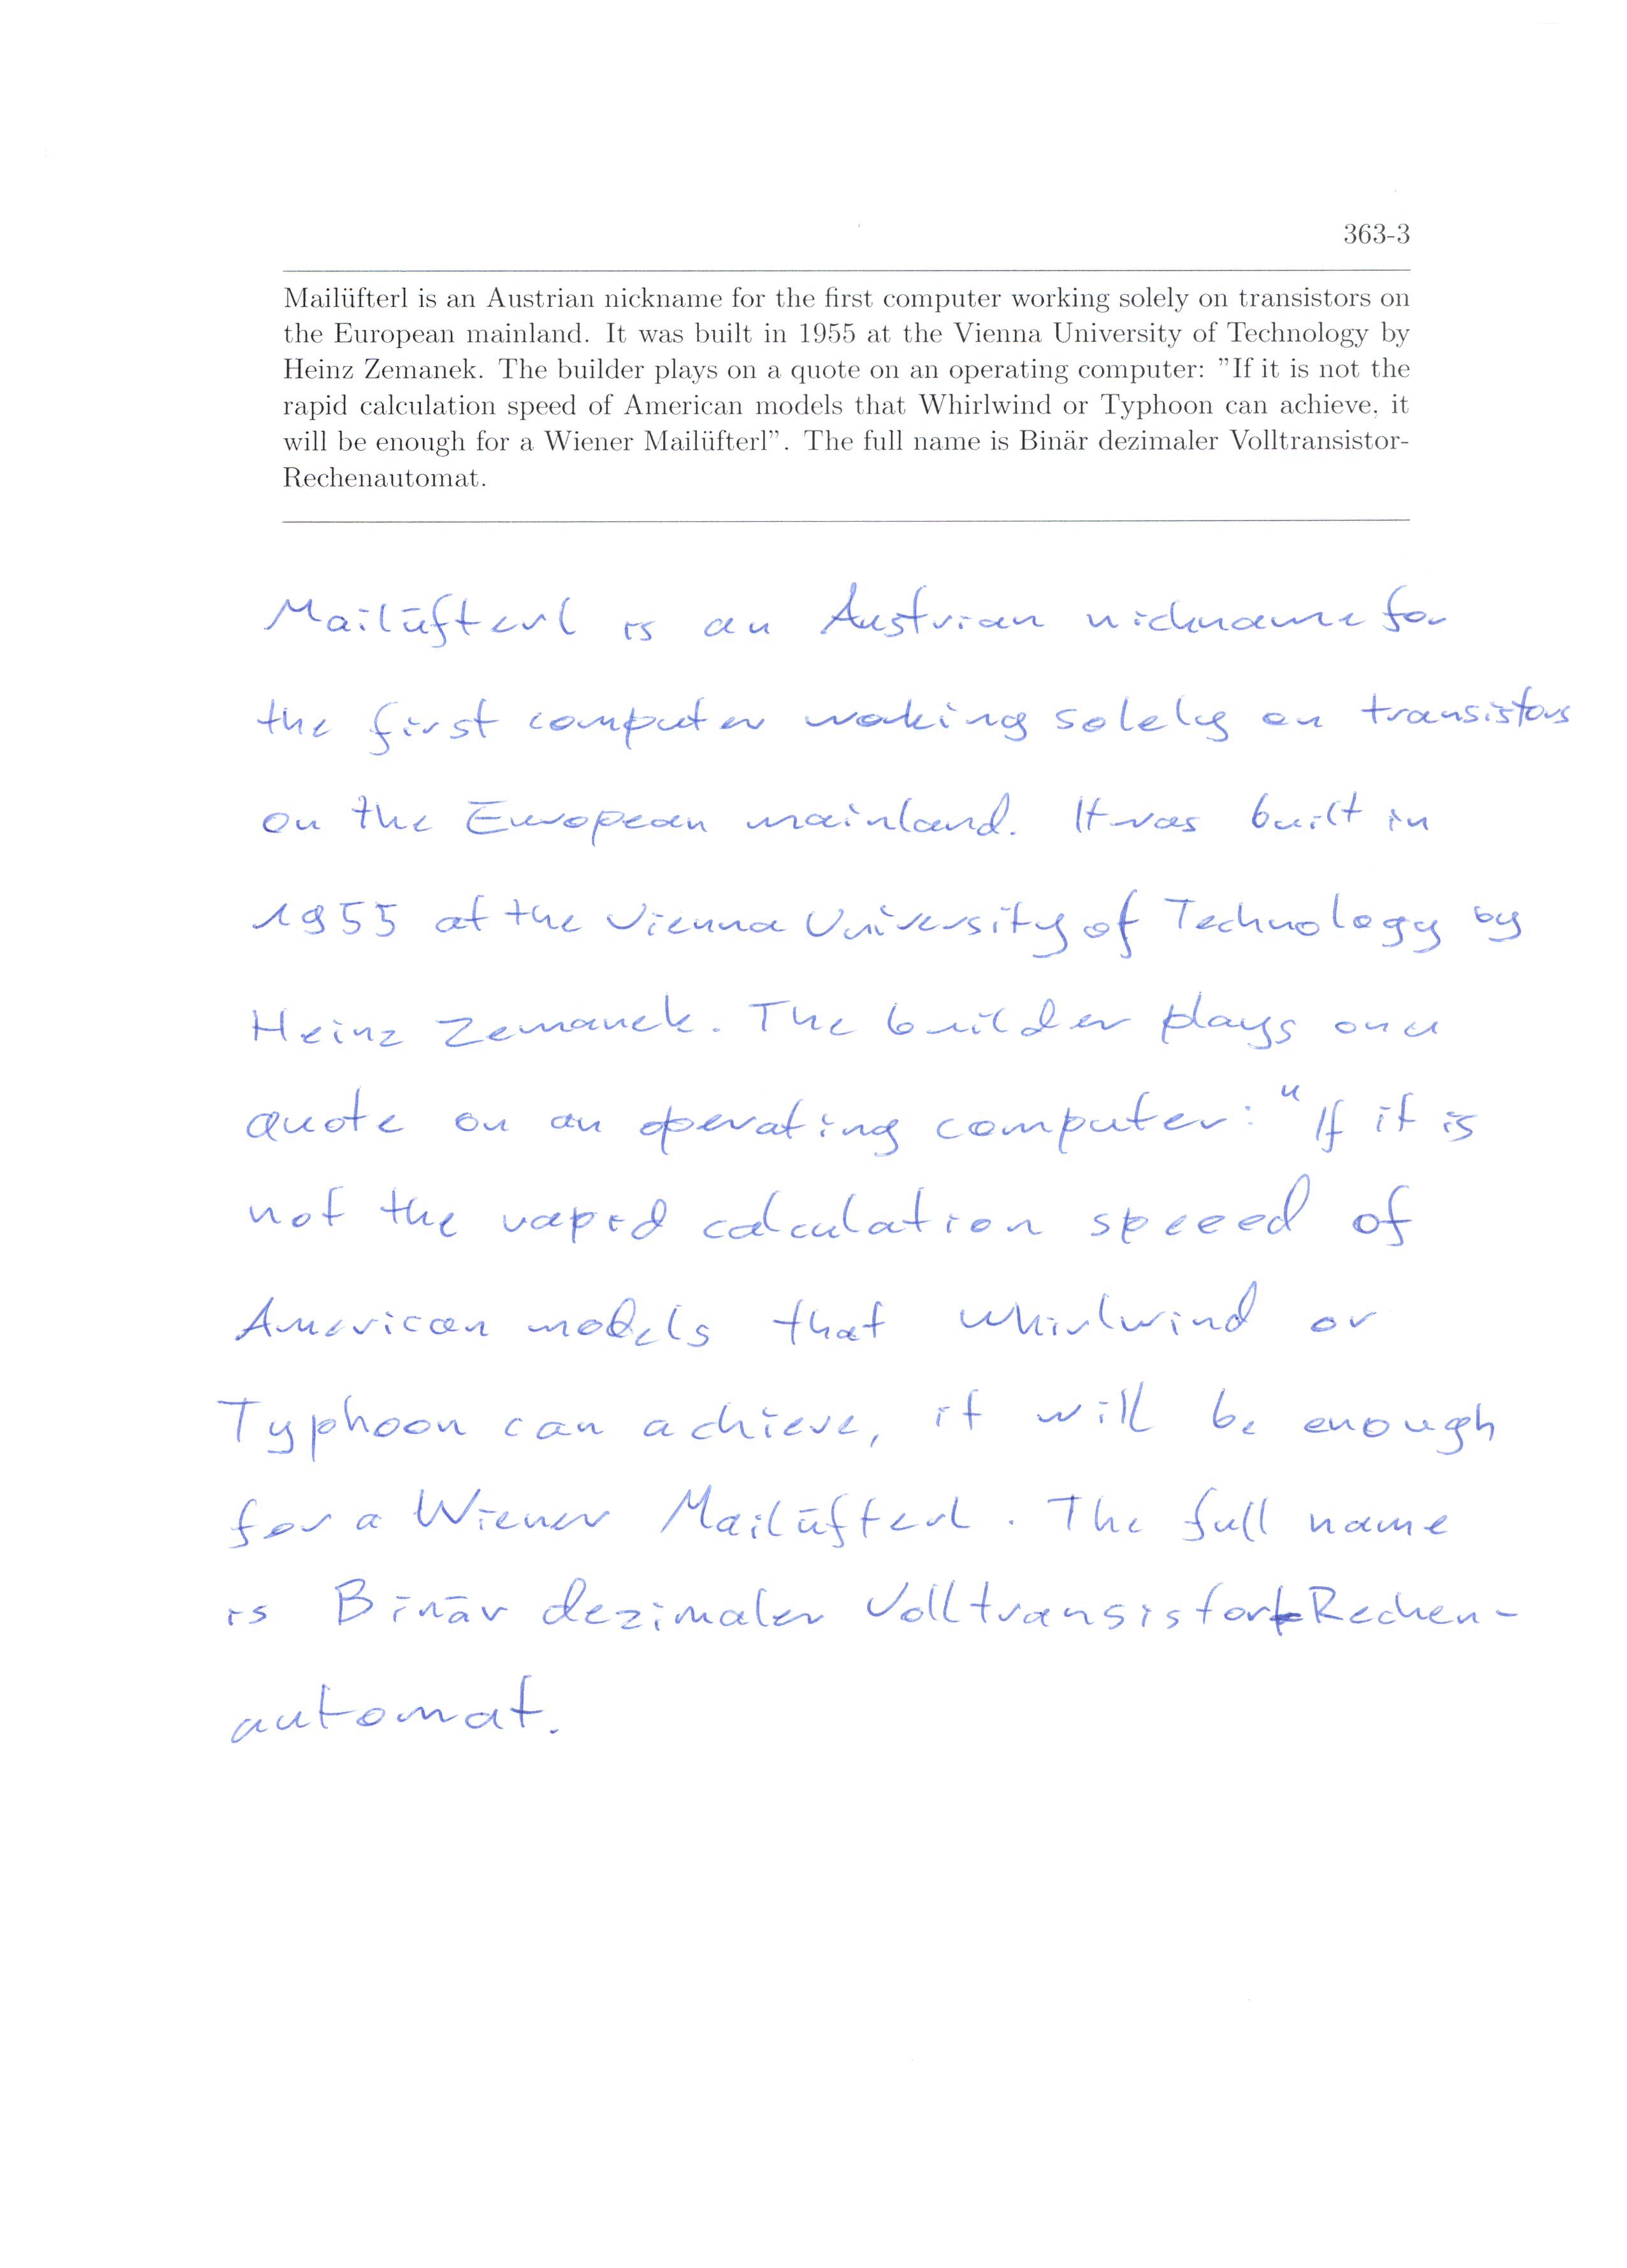 363-3
Mailüfterl is an Austrian nickname for the first computer working solely on transistors on
the European mainland. It was built in 1955 at the Vienna University of Technology by
Heinz Zemanek. The builder plays on a quote on an operating computer: ”If it is not the
rapid calculation speed of American models that Whirlwind or Typhoon can achieve, it
will be enough for a Wiener Mailüfterl”. The full name is Binär dezimaler Volltransistor-
Rechenautomat.
Mailüfterl is an Austrian nickname for
the first computer working solely on transistors
on the European mainland. It was built in
1955 at the Vienna University of Technology by
Heinz Zemanek. The builder plays on a
quote on an operating computer: "If it is
not the rapid calculation speeed of
American models that Whirlwind or
Typhoon can achieve, it will be enough
for a Wiener Mailüfterl. The full name
is Binär dezimaler Volltransistor-Rechen-
automat.